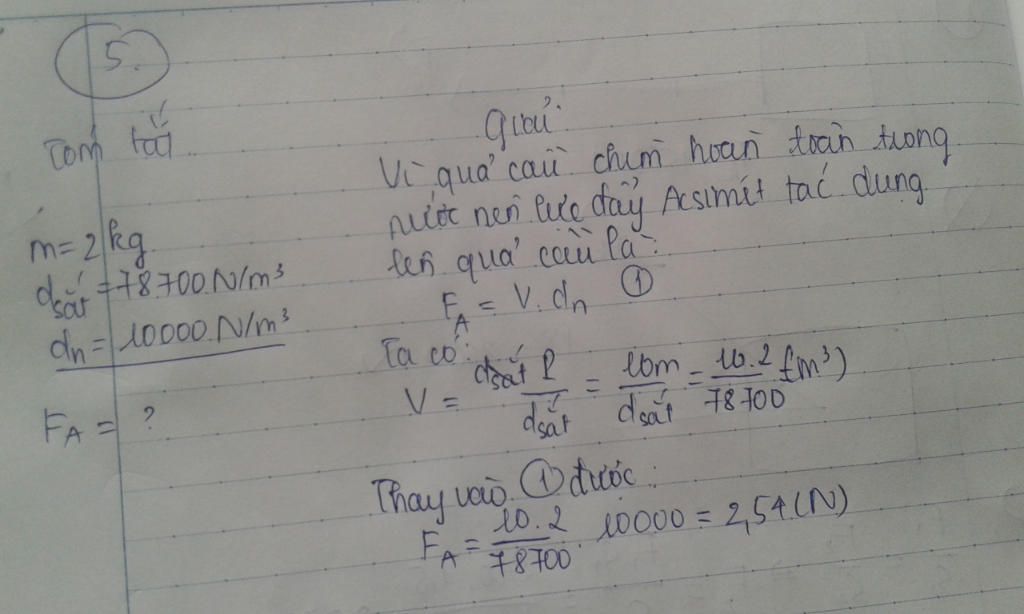 5.
Tóm tắt
m = 2 kg
dsắt = 78700 N/m³
dn = 10000 N/m³
FA = ?
Giải:
Vì quả cầu chìm hoàn toàn trong
nước nên lực đẩy Acsimét tác dụng
lên quả cầu là:
FA = V. dn ①
Ta có:
V = P/dsắt = 10m/dsắt = 10.2/78700 (m³)
Thay vào ① được:
FA = 10.2/78700 . 10000 = 2,54 (N)